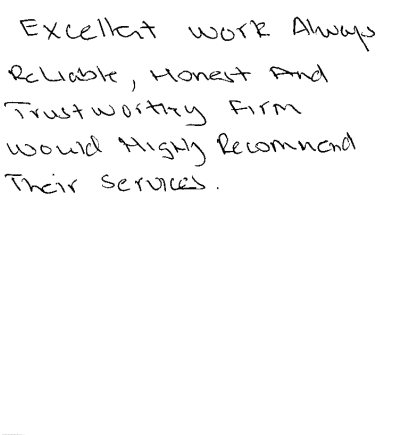 Excellent work Always
Reliable, Honest And
Trustworthy Firm
would Highly Recommend
Their services.